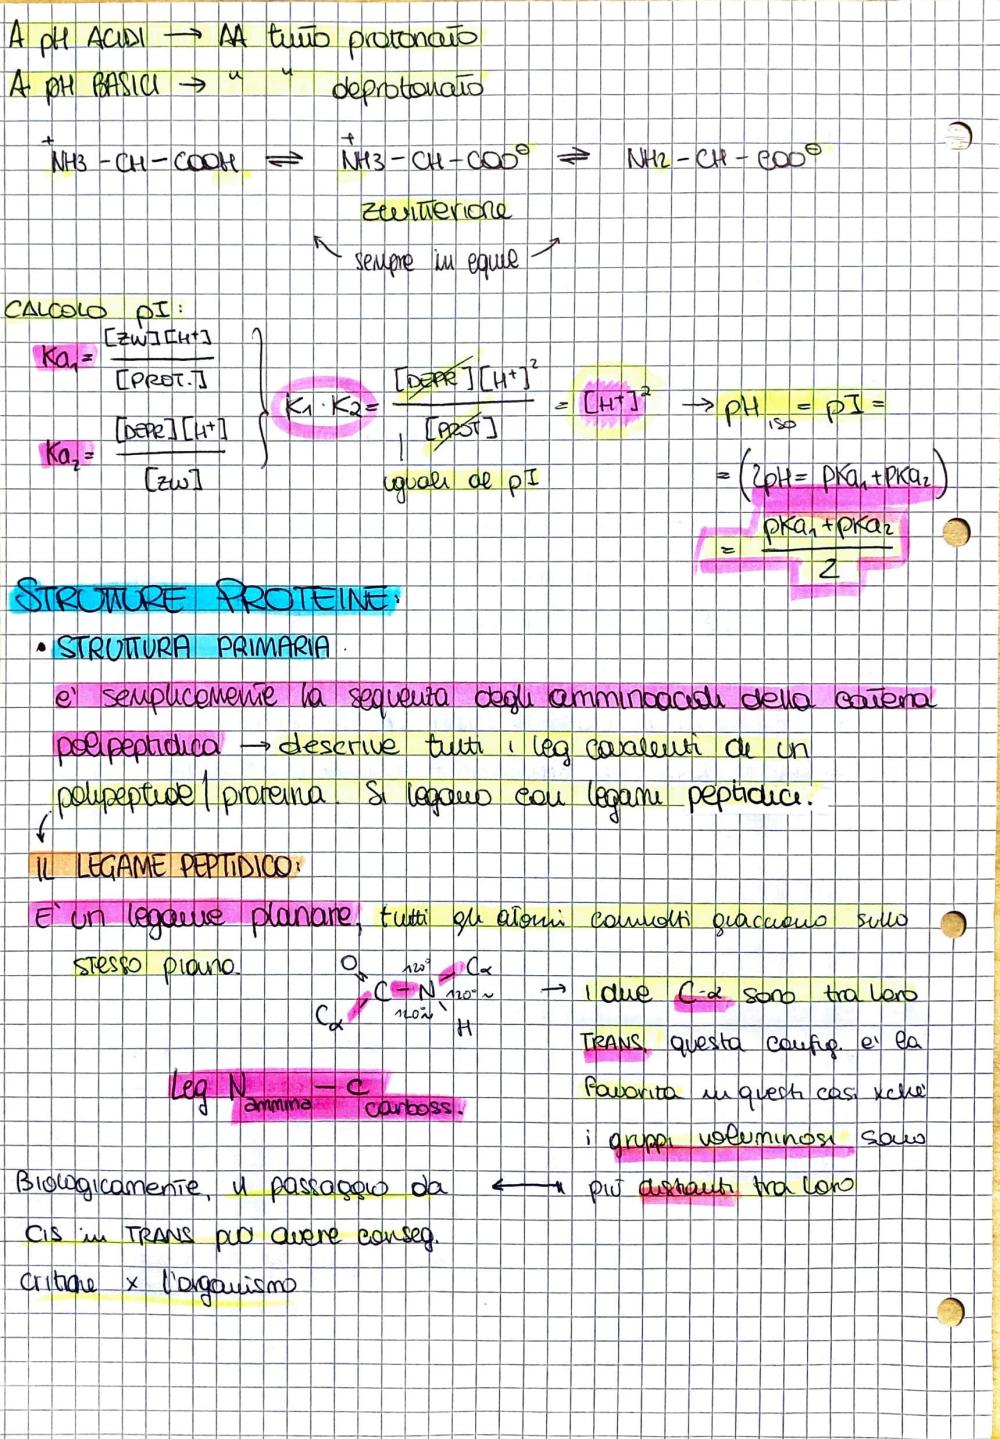 A pH ACIDI → AA tutto protonato
A pH BASICI → " " deprotonato
+NH3 - CH - COOH ⇌ +NH3 - CH - COO⊖ ⇌ NH2 - CH - COO⊖
Zwitterione
sempre in equil
CALCOLO pI:
Ka1 = [ZW][H+] / [PROT.]
Ka2 = [DEPR][H+] / [ZW]
K1 · K2 = [DEPR][H+]² / [PROT] = [H+]² → pH iso = pI =
uguali al pI
= (2pH = pKa1 + pKa2)
= pKa1 + pKa2 / 2
STRUTTURE PROTEINE:
• STRUTTURA PRIMARIA.
e' semplicemente la sequenza degli amminoacidi della catena
polipeptidica → descrive tutti i leg covalenti di un
polipeptide / proteina. Si legano con legami peptidici.
IL LEGAME PEPTIDICO:
E' un legame planare, tutti gli atomi coinvolti giacciono sullo
stesso piano.
O 120° Cα
C - N 120° ~
Cα 120 ~ H
→ I due C-α sono tra loro
TRANS, questa config. e' la
favorita in questi casi xchè
i gruppi voluminosi sono
più distanti tra loro
Leg N ammina - C carboss.
Biologicamente, il passaggio da
CIS in TRANS può avere conseg.
critiche x l'organismo